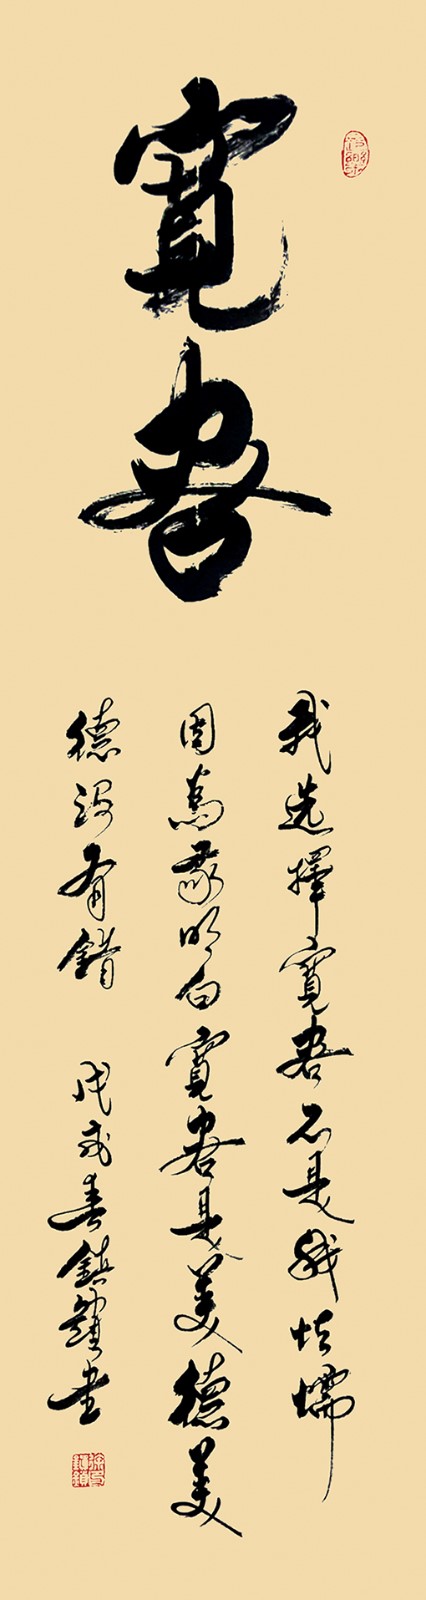 寬容
我選擇寬容不是我怯懦
因為我明白寬容是美德美
德沒有錯 戊戌春鎮書